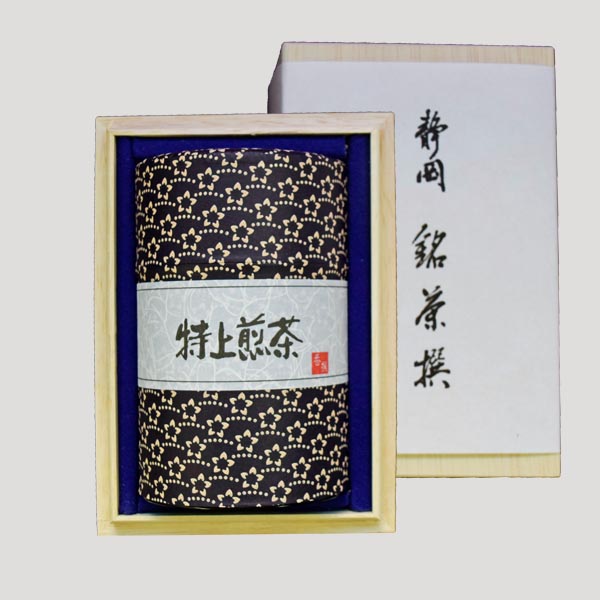 特上煎茶
静岡 銘茶撰